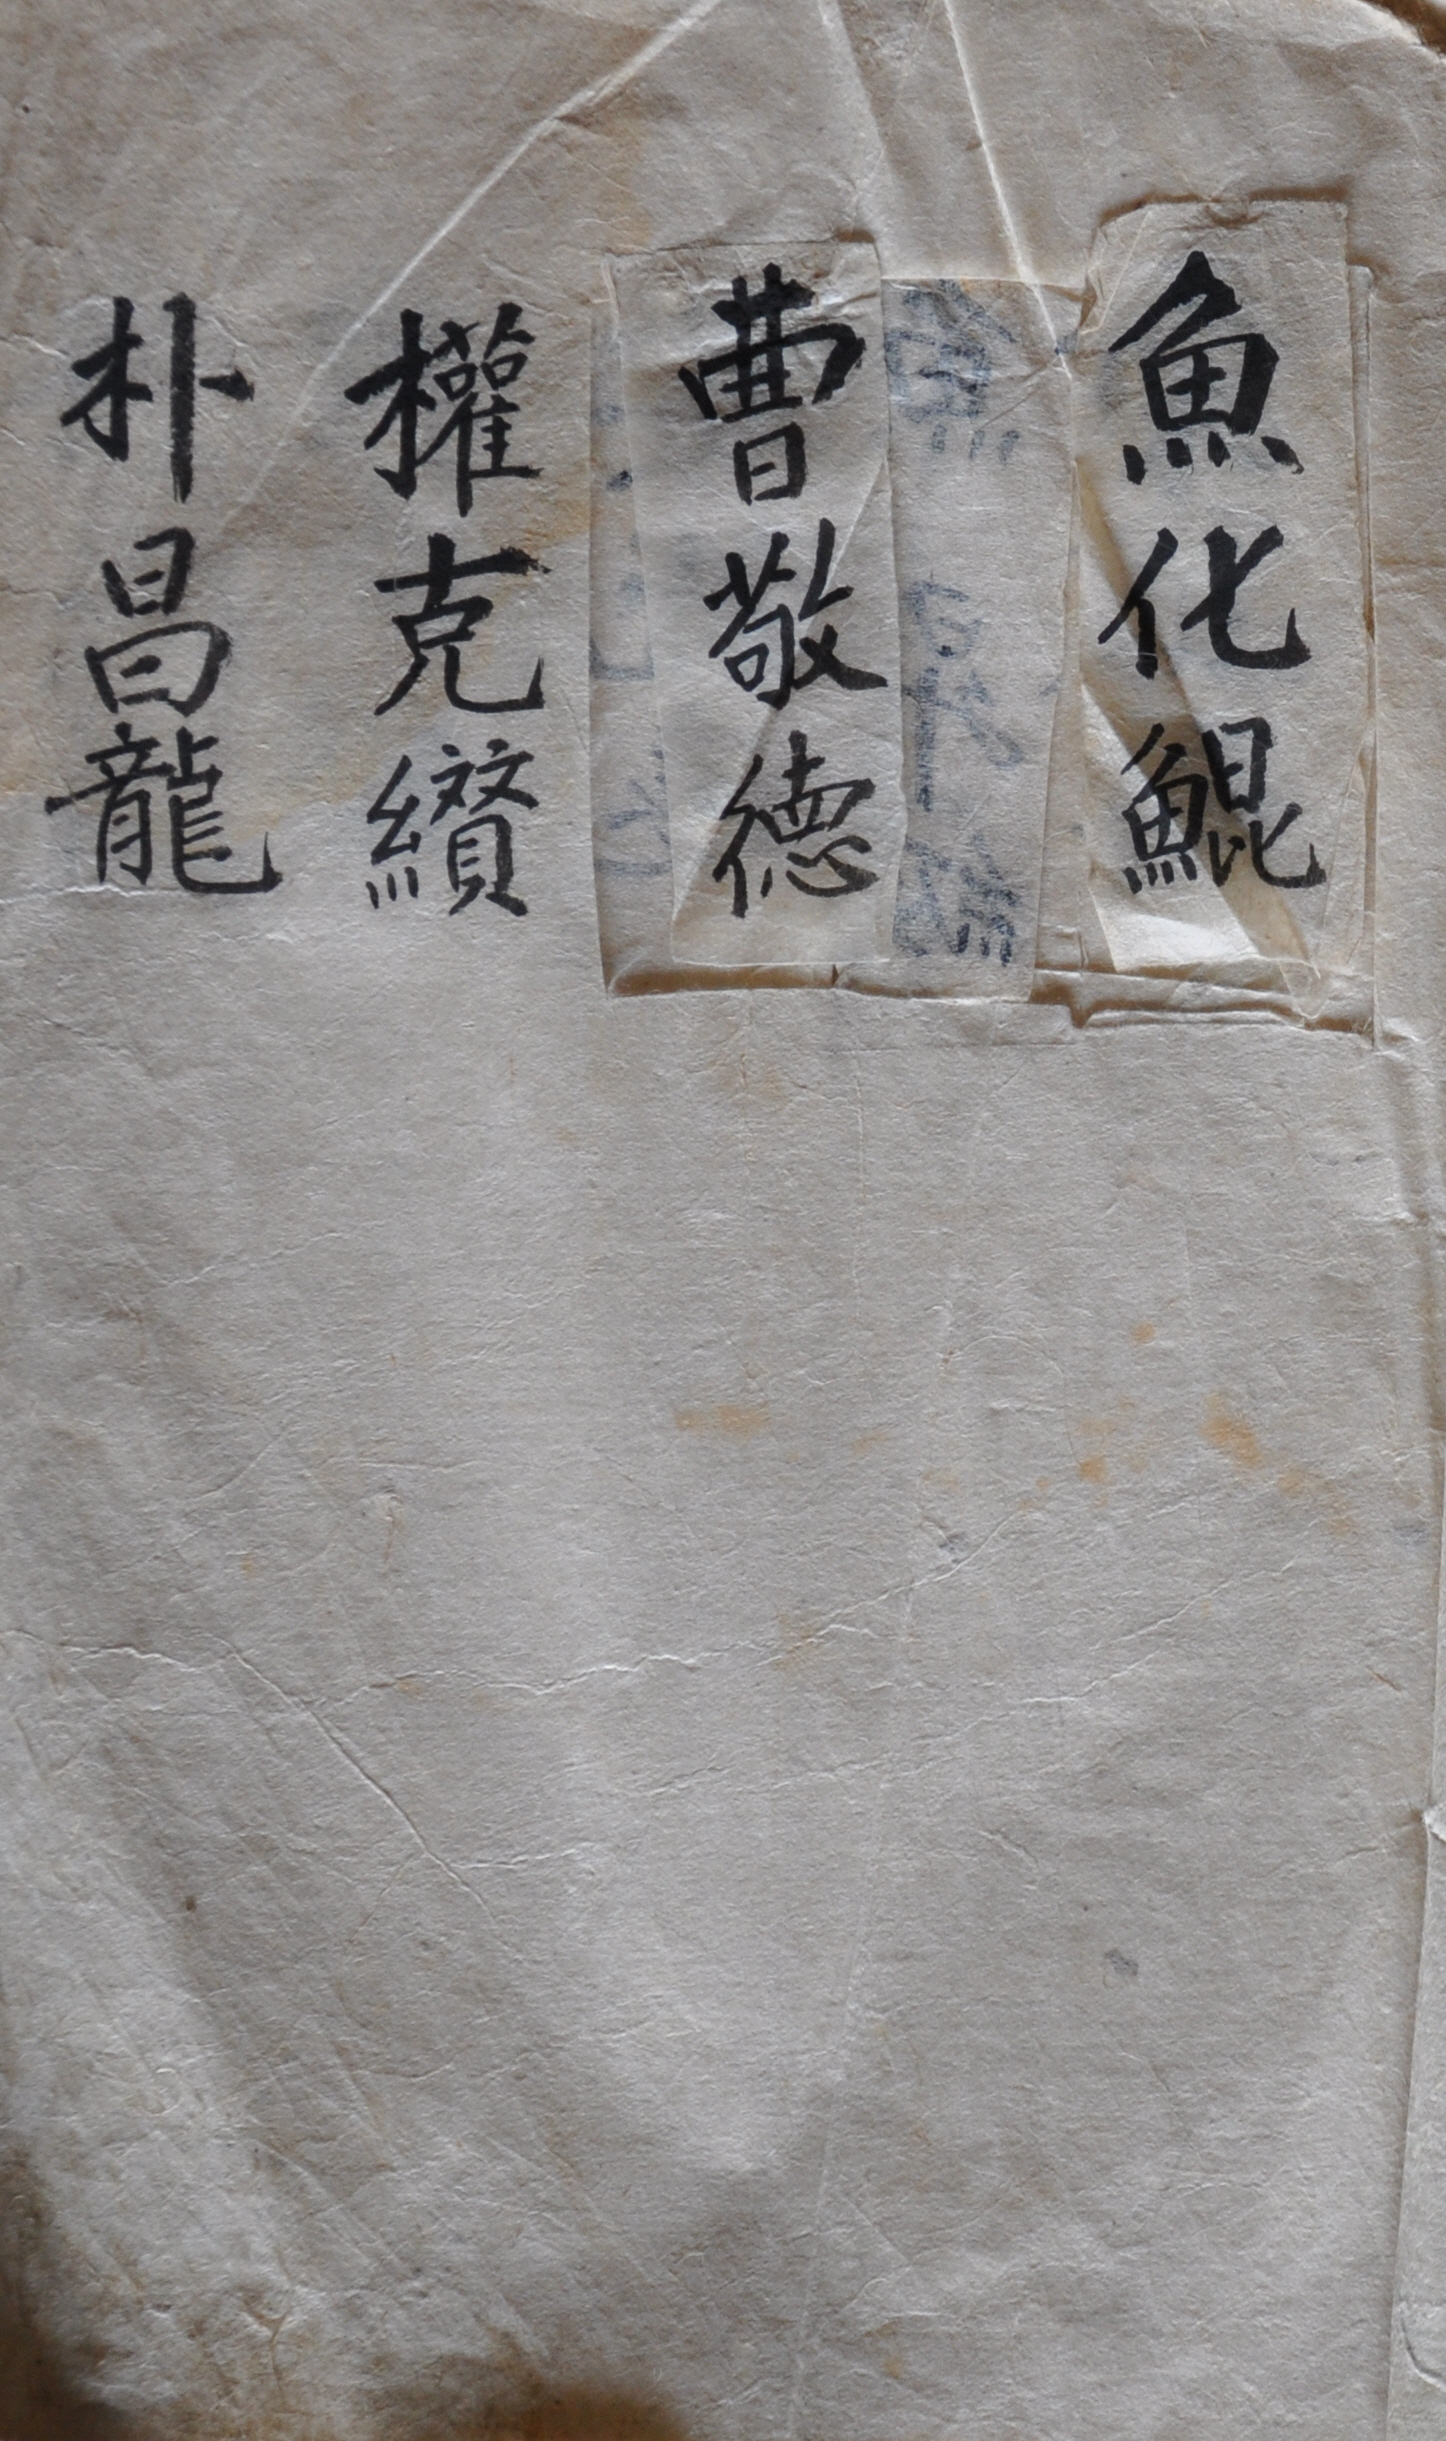 魚化鯤
曹敬德
權克纘
朴昌龍